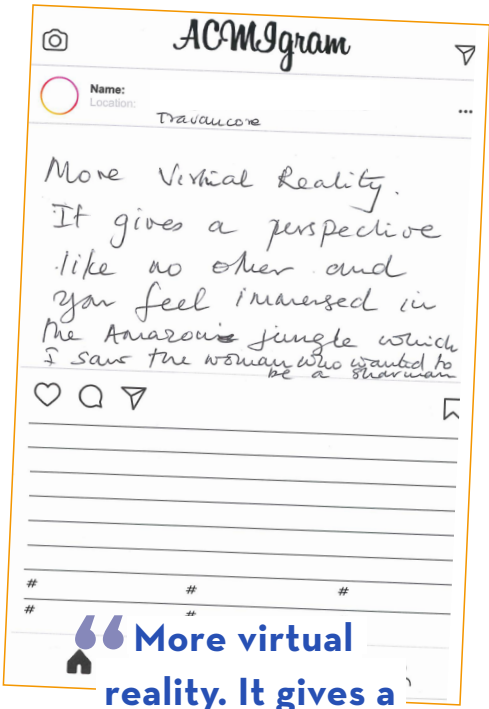 ACMIgram
Name:
Location:
Travancore
More Virtual Reality.
It gives a perspective
like no other and
you feel immersed in
the Amazon jungle which
I saw the woman who wanted to
be a sharman
# # #
# #
“ More virtual
reality. It gives a